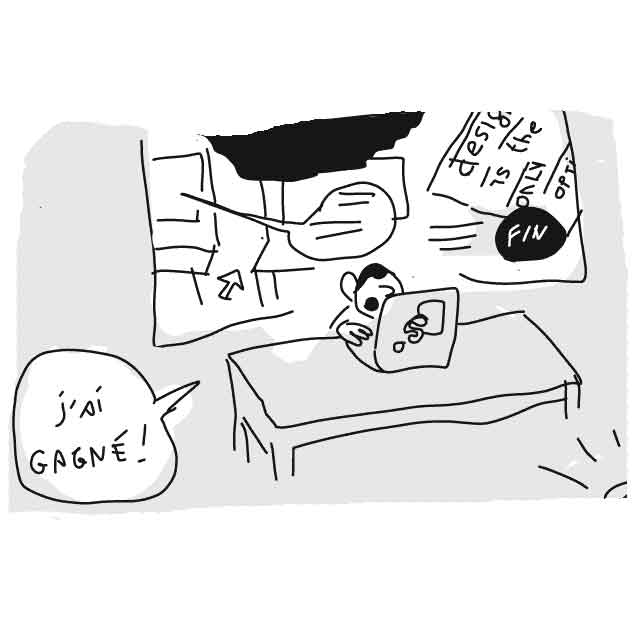 design
is the
ONLY
OPTi
FIN
j'ai
GAGNÉ !